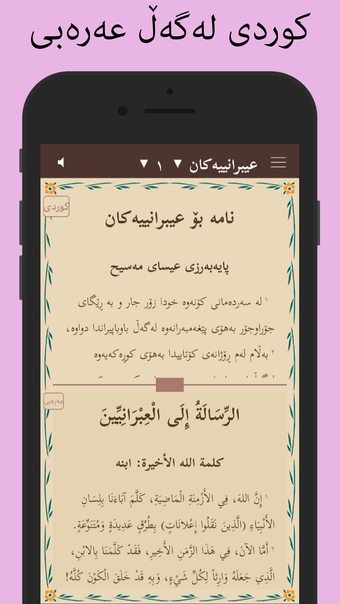 کوردی لەگەڵ عەرەبی
عیبرانییەکان ▼ ١ ▼
کوردی
نامە بۆ عیبرانییەکان
پایەبەرزی عیسای مەسیح
١ لە سەردەمانی کۆنەوە خودا زۆر جار و بە ڕێگای
جۆراوجۆر بەهۆی پێغەمبەرانەوە لەگەڵ باوباپیراندا دواوە،
٢ بەڵام لەم ڕۆژانەی کۆتاییدا بەهۆی کوڕەکەیەوە
عەرەبی
الرِّسَالَةُ إِلَى الْعِبْرَانِيِّينَ
كلمة الله الأخيرة: ابنه
١ إِنَّ اللهَ، فِي الأَزْمِنَةِ الْمَاضِيَةِ، كَلَّمَ آبَاءَنَا بِلِسَانِ
الأَنْبِيَاءِ (الَّذِينَ نَقَلُوا إِعْلانَاتٍ) بِطُرُقٍ عَدِيدَةٍ وَمُتَنَوِّعَةٍ.
٢ أَمَّا الآنَ، فِي هَذَا الزَّمَنِ الأَخِيرِ، فَقَدْ كَلَّمَنَا بِالابْنِ،
الَّذِي جَعَلَهُ وَارِثاً لِكُلِّ شَيْءٍ، وَبِهِ قَدْ خَلَقَ الْكَوْنَ كُلَّهُ!